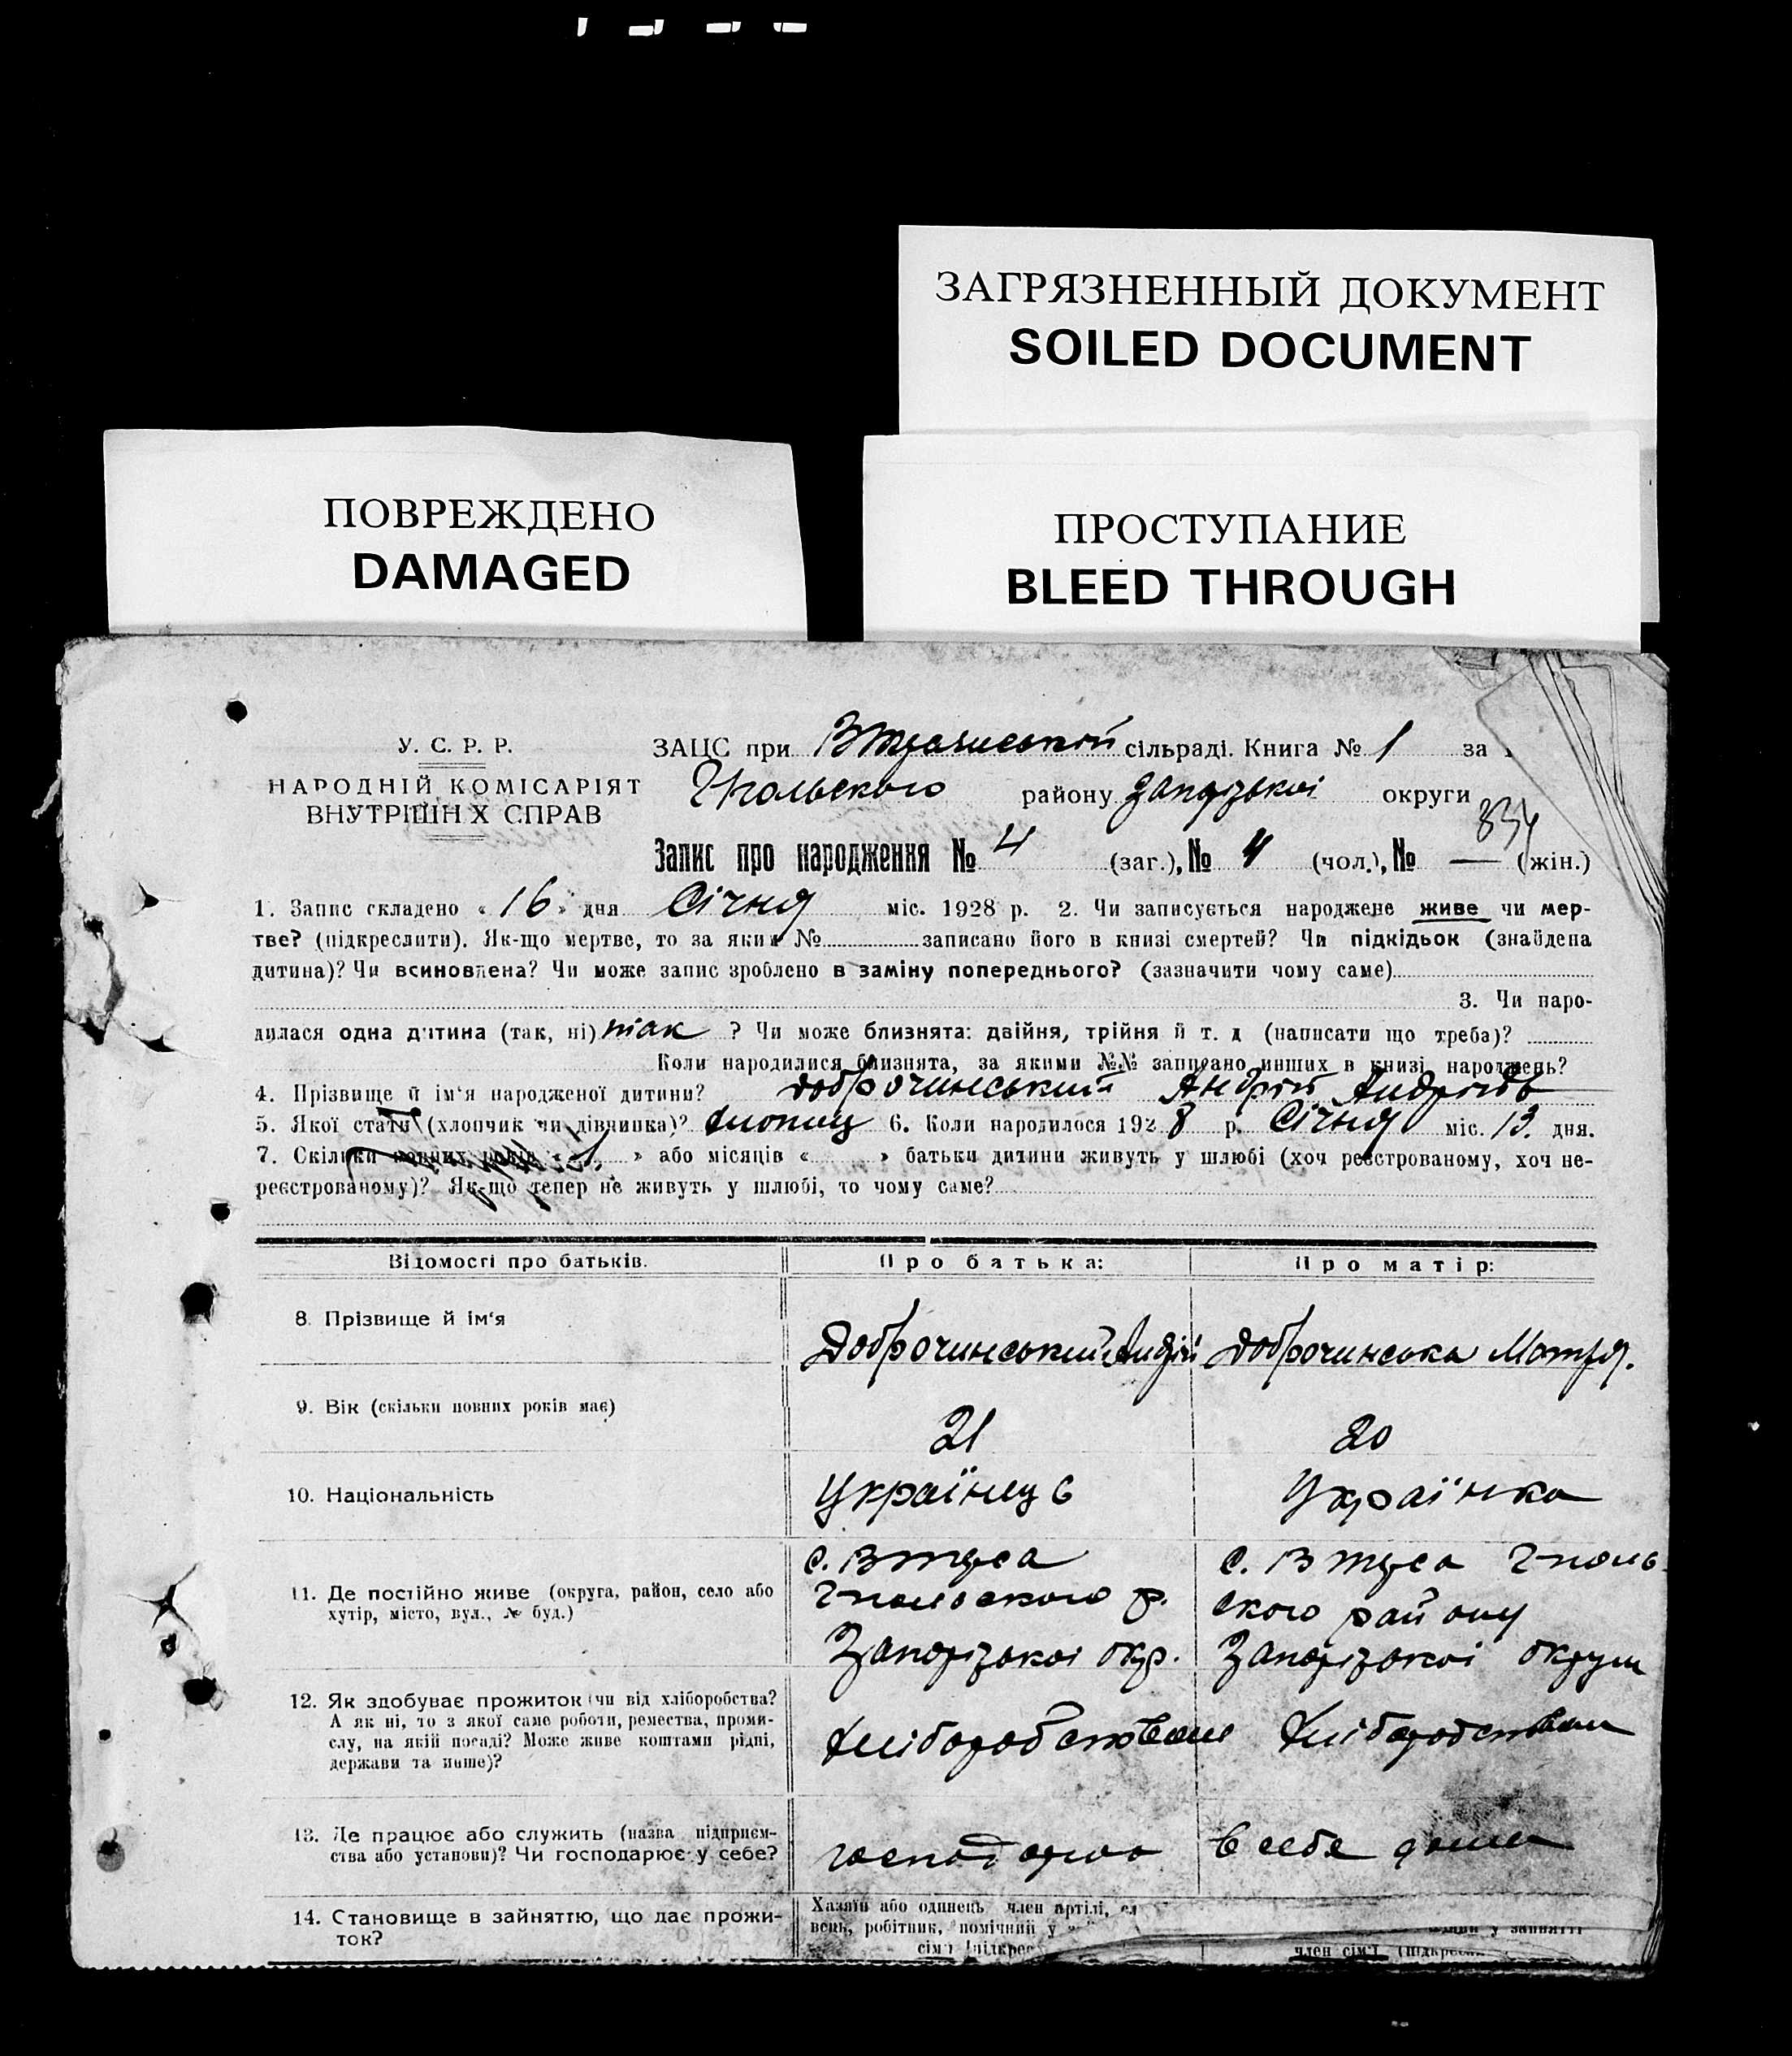 ЗАГРЯЗНЕННЫЙ ДОКУМЕНТ
SOILED DOCUMENT
ПОВРЕЖДЕНО
DAMAGED
ПРОСТУПАНИЕ
BLEED THROUGH
У. С. Р. Р.
НАРОДНІЙ КОМІСАРІЯТ
ВНУТРІШНІХ СПРАВ
ЗАЦС при сільраді. Книга № 1 за
району Запорізької округи
834
Запис про народження № 4 (заг.), № 4 (чол.), № — (жін.)
1. Запис складено «16» дня Січня міс. 1928 р. 2. Чи записується народжене живе чи мер-
тве? (підкреслити). Як-що мертве, то за яким № записано його в книзі смертей? Чи підкідьок (знайдена
дитина)? Чи всиновлена? Чи може запис зроблено в заміну попереднього? (зазначити чому саме)
3. Чи наро-
дилася одна дитина (так, ні) так ? Чи може близнята: двійня, трійня й т. д (написати що треба)?
Коли народилися близнята, за якими №№ записано инших в книзі народжень?
4. Прізвище й ім'я народженої дитини? Доброчинський Андрій Андріїв
5. Якої стати (хлопчик чи дівчинка)? хлопец 6. Коли народилося 1928 р. Січня міс. 13. дня.
7. Скільки повних років « » або місяців « » батьки дитини живуть у шлюбі (хоч реєстрованому, хоч не-
реєстрованому)? Як-що тепер не живуть у шлюбі, то чому саме?
Відомості про батьків. Про батька: Про матір:
8. Прізвище й ім'я Доброчинський Андрій Доброчинська Мотря.
9. Вік (скільки повних років має) 21 20
10. Національність Українець Українка
11. Де постійно живе (округа, район, село або
хутір, місто, вул., № буд.)
с.
р.
Запорізької окр.
с.
ского району
Запорізької округи
12. Як здобуває прожиток (чи від хліборобства?
А як ні, то з якої саме роботи, ремества, проми-
слу, на якій посаді? Може живе коштами рідні,
держави та инше)?
хліборобством хліборобством
13. Де працює або служить (назва підприєм-
ства або установи)? Чи господарює у себе?
в себе дома
14. Становище в зайняттю, що дає прожи-
ток?
Хазяїн або одинець член артілі,
вець, робітник, помічний у
сім'ї (підкрес
у занятті
член сім'ї (підкресл